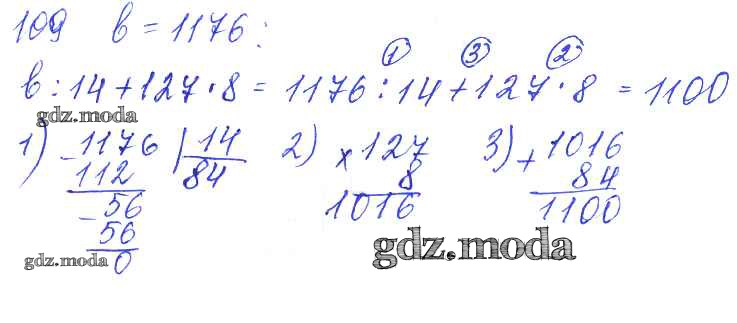 109 в = 1176:
① ③ ②
в : 14 + 127 · 8 = 1176 : 14 + 127 · 8 = 1100
gdz.moda
1) - 1176 | 14 2) × 127 3) + 1016
112 84 8 84
- 56 1016 1100
56
gdz.moda 0 gdz.moda